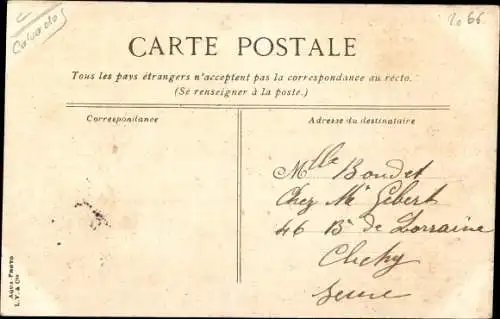 Calvados
2066
CARTE POSTALE
Tous les pays étrangers n'acceptent pas la correspondance au recto.
(Se renseigner à la poste.)
Correspondance
Adresse du destinataire
Mlle Boudet
Chez Mr Gebert
46 Bd de Lorraine
Clichy
Seine
AQUA-PHOTO
L. V. & Cie